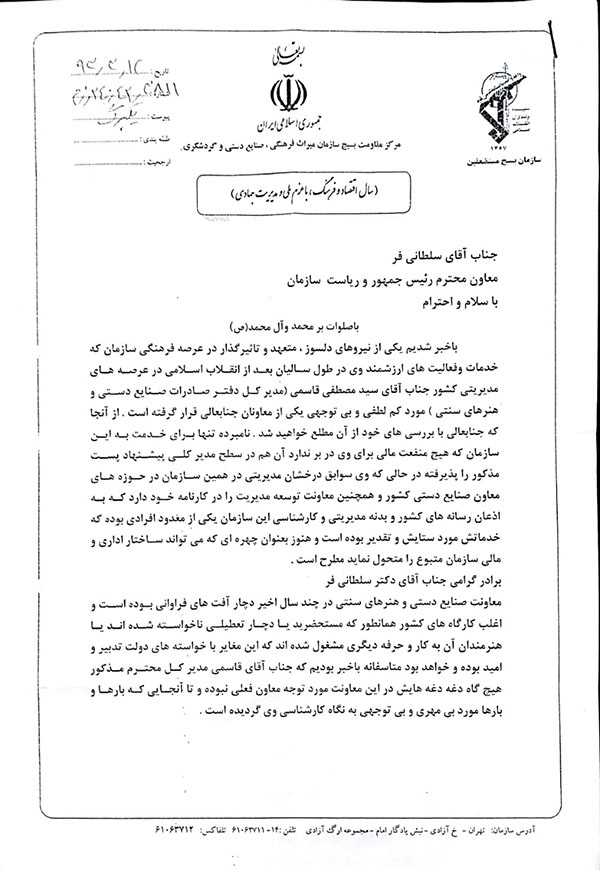 بسمه تعالی
جمهوری اسلامی ایران
مرکز مقاومت بسیج سازمان میراث فرهنگی، صنایع دستی و گردشگری
تاریخ:
پیوست:
طبقه بندی:
ارجحیت:
۱۳۵۷
سازمان بسیج مستضعفین
(سال اقتصاد و فرهنگ، با عزم ملی و مدیریت جهادی)
جناب آقای سلطانی فر
معاون محترم رئیس جمهور و ریاست سازمان
با سلام و احترام
باصلوات بر محمد وآل محمد(ص)
باخبر شدیم یکی از نیروهای دلسوز ، متعهد و تاثیرگذار در عرصه فرهنگی سازمان که
خدمات وفعالیت های ارزشمند وی در طول سالیان بعد از انقلاب اسلامی در عرصه های
مدیریتی کشور جناب آقای سید مصطفی قاسمی (مدیر کل دفتر صادرات صنایع دستی و
هنرهای سنتی ) مورد کم لطفی و بی توجهی یکی از معاونان جنابعالی قرار گرفته است . از آنجا
که جنابعالی با بررسی های خود از آن مطلع خواهید شد . نامبرده تنها برای خدمت به این
سازمان که هیچ منفعت مالی برای وی در بر ندارد آن هم در سطح مدیر کلی پیشنهاد پست
مذکور را پذیرفته در حالی که وی سوابق درخشان مدیریتی در همین سازمان در حوزه های
معاون صنایع دستی کشور و همچنین معاونت توسعه مدیریت را در کارنامه خود دارد که به
اذعان رسانه های کشور و بدنه مدیریتی و کارشناسی این سازمان یکی از مغدود افرادی بوده که
خدماتش مورد ستایش و تقدیر بوده است و هنوز بعنوان چهره ای که می تواند ساختار اداری و
مالی سازمان متبوع را متحول نماید مطرح است .
برادر گرامی جناب آقای دکتر سلطانی فر
معاونت صنایع دستی و هنرهای سنتی در چند سال اخیر دچار آفت های فراوانی بوده است و
اغلب کارگاه های کشور همانطور که مستحضرید یا دچار تعطیلی ناخواسته شده اند یا
هنرمندان آن به کار و حرفه دیگری مشغول شده اند که این مغایر با خواسته های دولت تدبیر و
امید بوده و خواهد بود متاسفانه باخبر بودیم که جناب آقای قاسمی مدیر کل محترم مذکور
هیچ گاه دغه دغه هایش در این معاونت مورد توجه معاون فعلی نبوده و تا آنجایی که بارها و
بارها مورد بی مهری و بی توجهی به نگاه کارشناسی وی گردیده است .
آدرس سازمان: تهران - خ آزادی - نبش یادگار امام - مجموعه ارگ آزادی تلفن: ۱۴-۶۱۰۶۳۷۱۱ تلفاکس: ۶۱۰۶۳۷۱۲